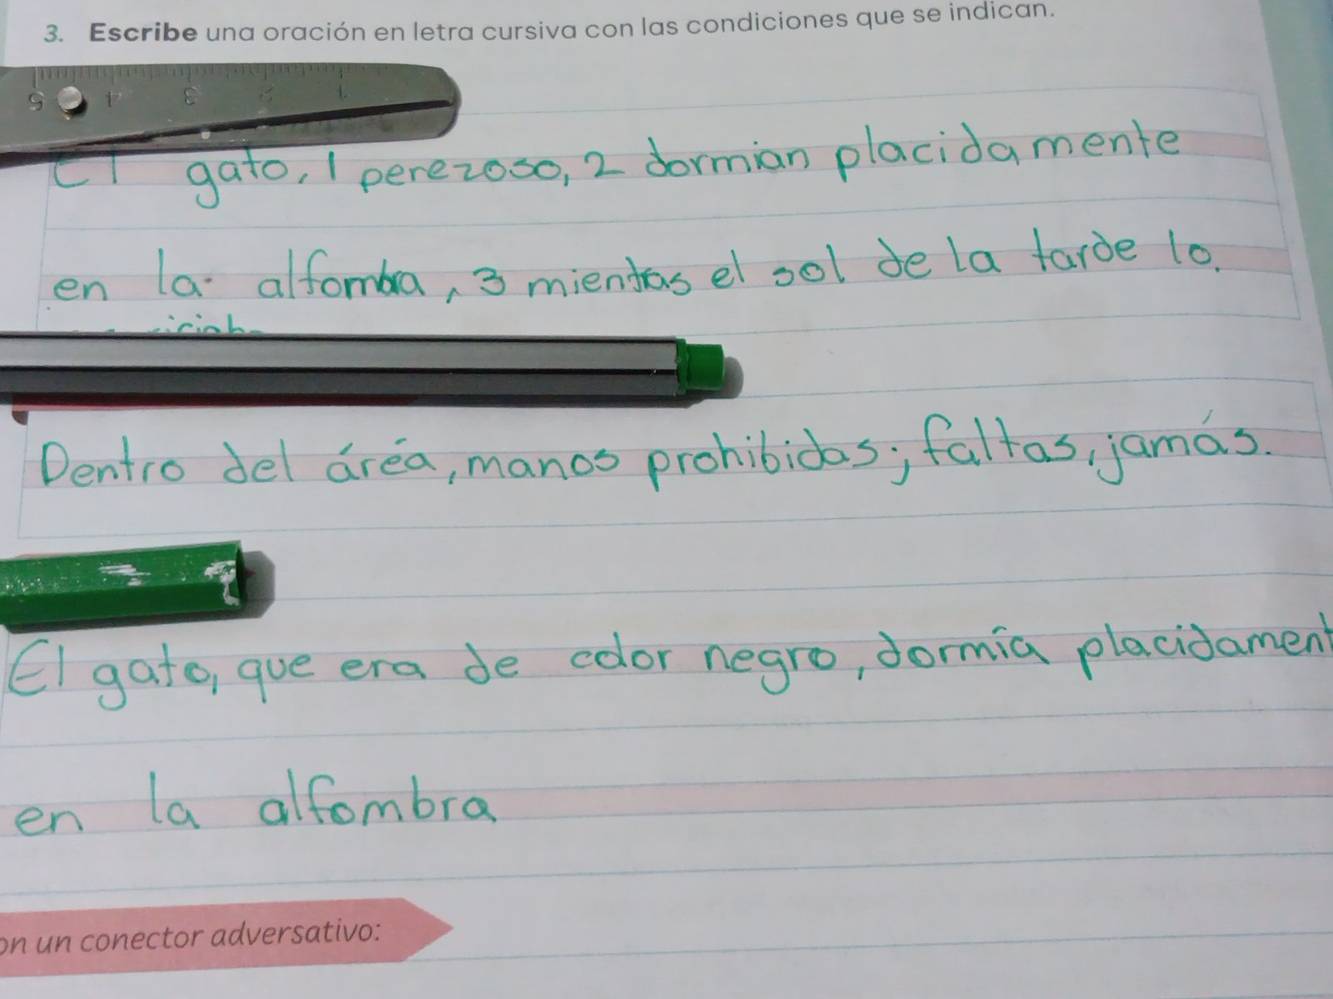 3. Escribe una oración en letra cursiva con las condiciones que se indican.
5 4 3 2 1
El gato, 1 perezoso, 2 dormian placidamente
en la alfombra, 3 mientras el sol de la tarde lo.
Dentro del área, manos prohibidas; faltas, jamás.
El gato, que era de color negro, dormía placidament
en la alfombra
on un conector adversativo: